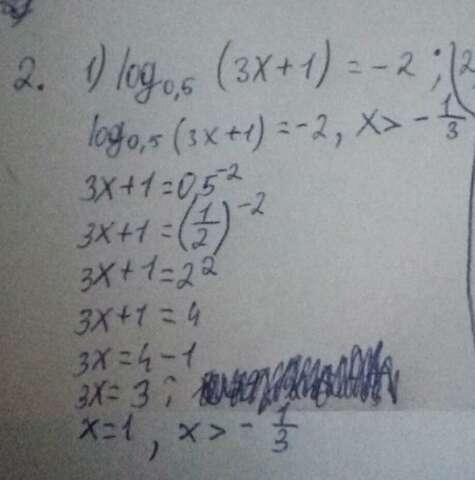 2. 1) log₀,₅ (3x+1) = -2 ; (2
log₀,₅ (3x+1) = -2, x > -1/3
3x+1 = 0,5⁻²
3x+1 = (1/2)⁻²
3x+1 = 2²
3x+1 = 4
3x = 4 - 1
3x = 3 ;
x = 1, x > -1/3